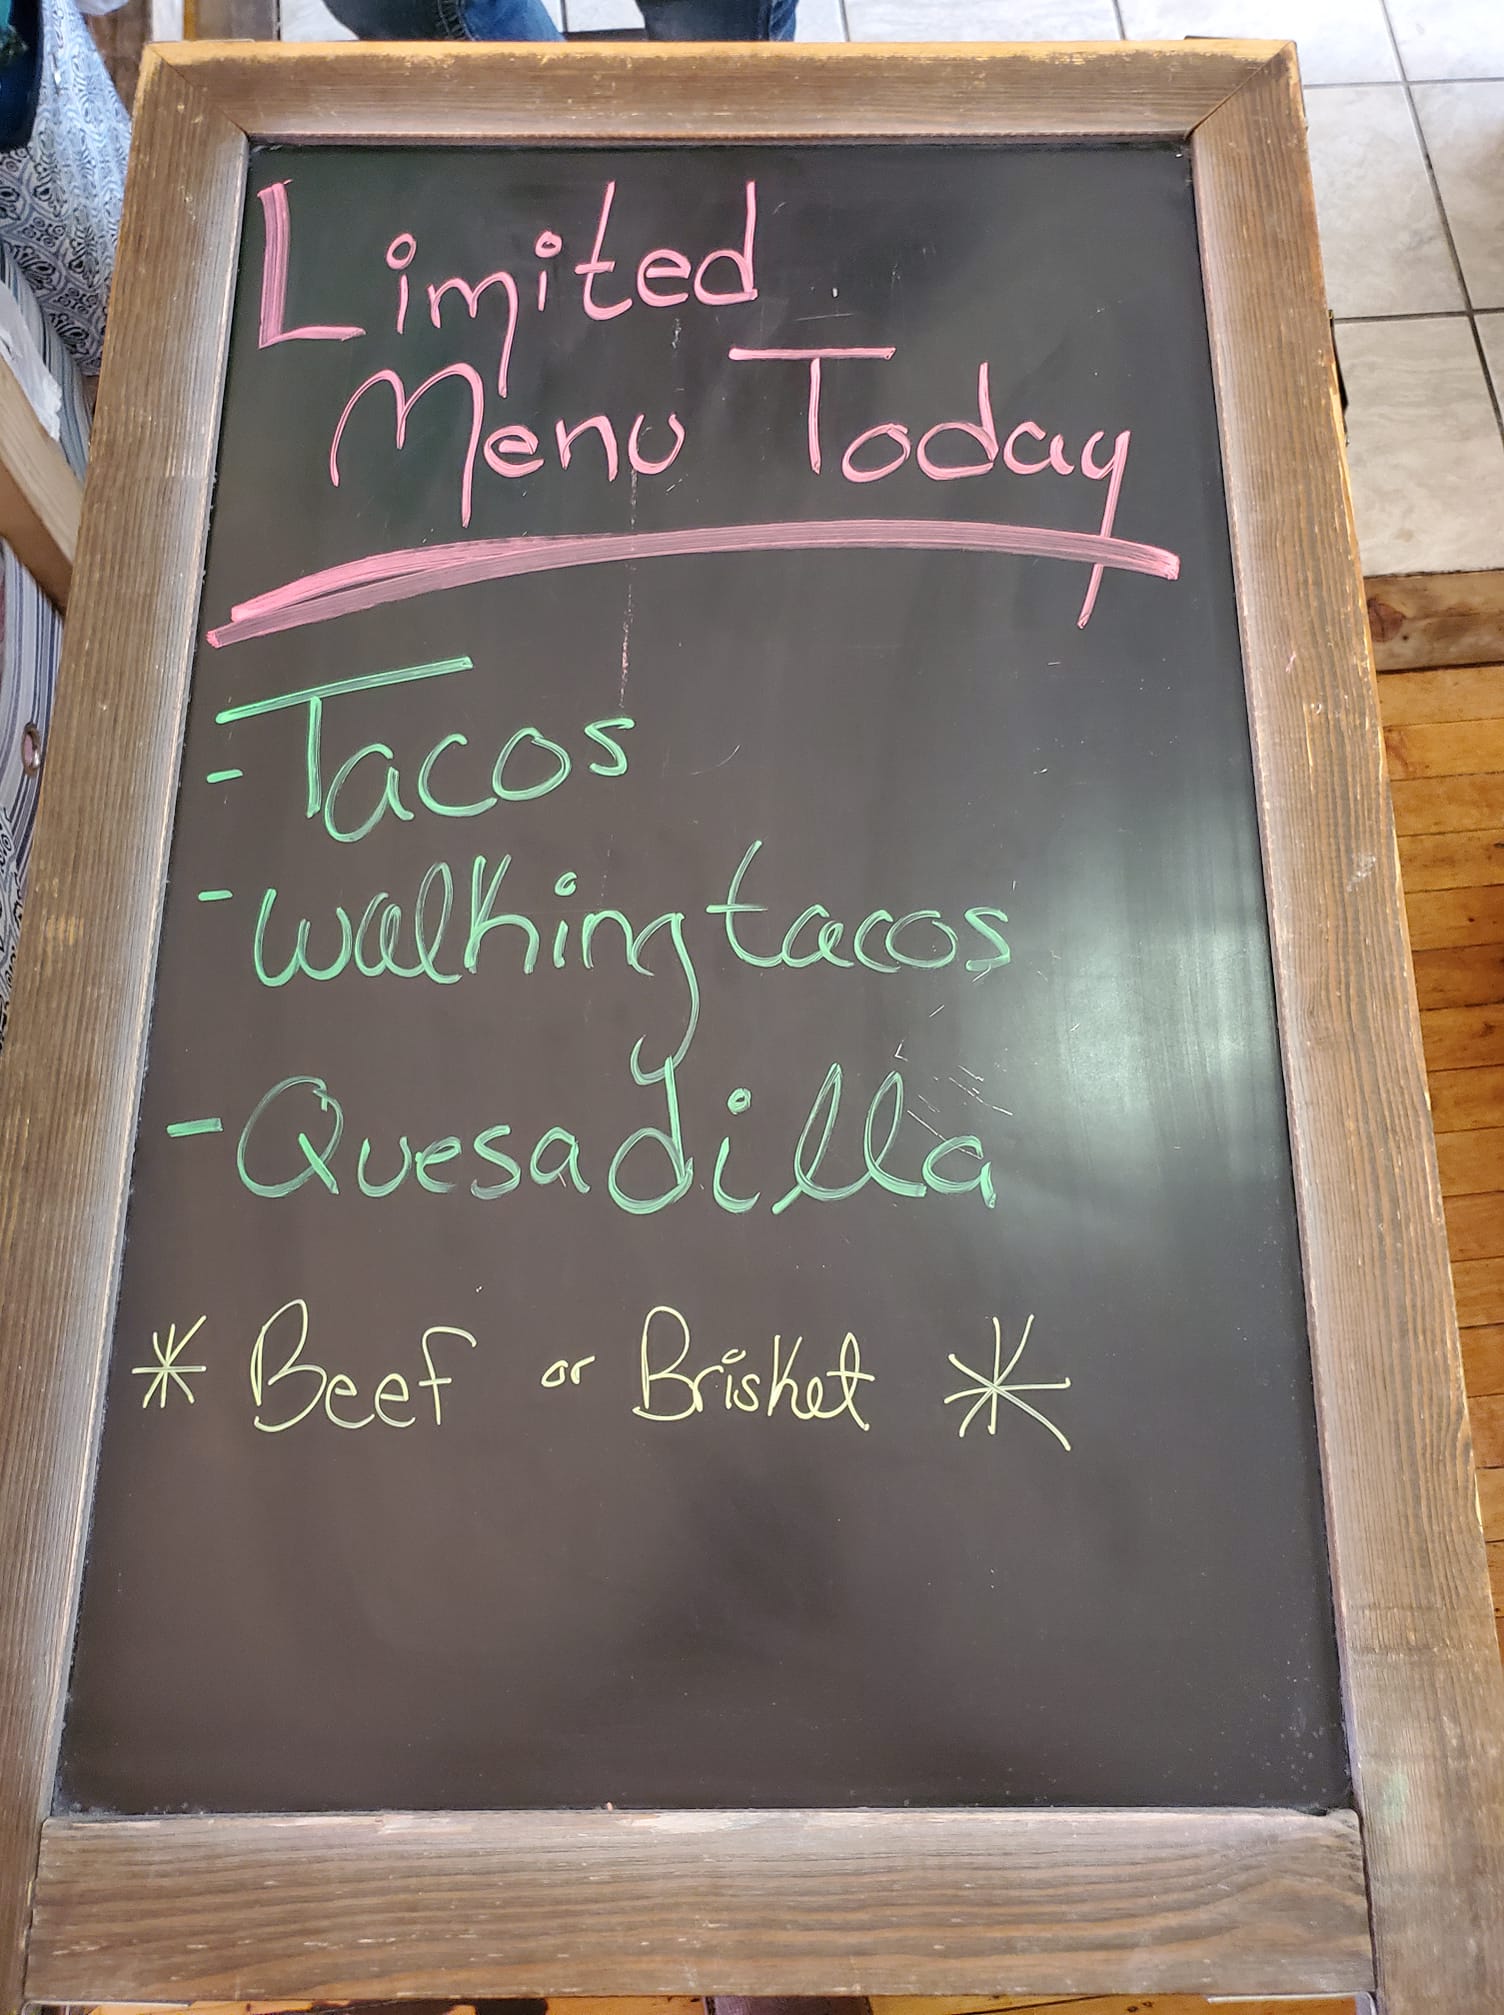 Limited
Menu Today
- Tacos
- Walking tacos
- Quesadilla
* Beef or Brisket *